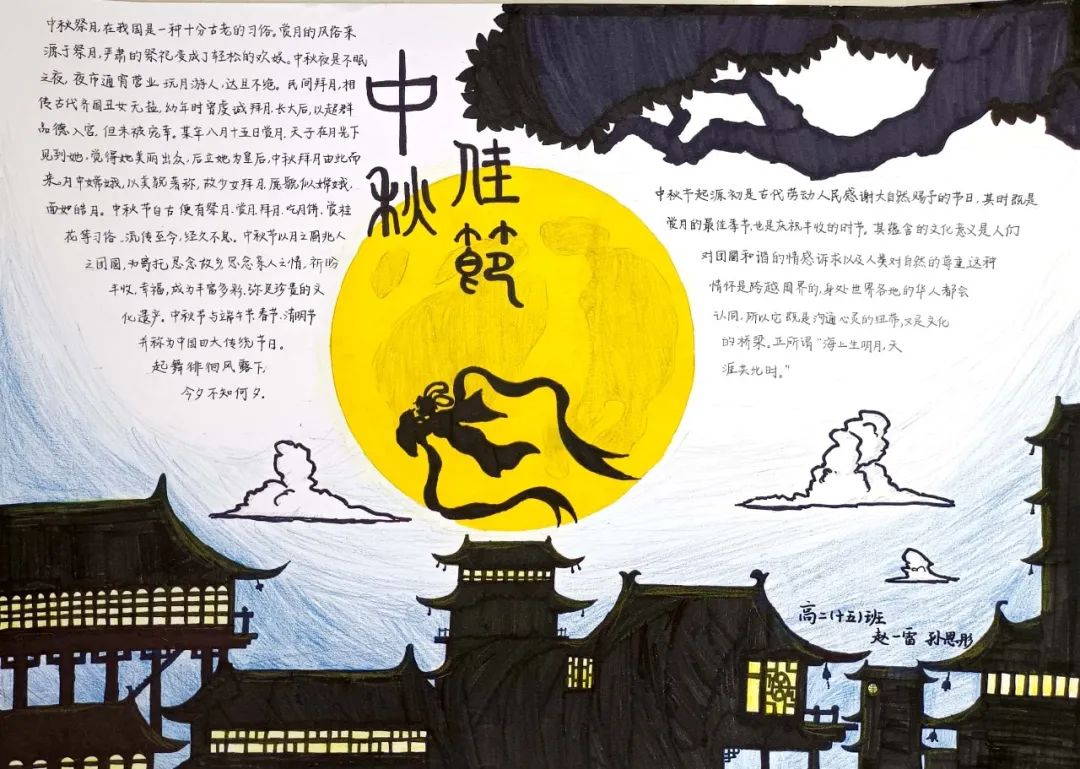 中秋祭月,在我国是一种十分古老的习俗。赏月的风俗来
源于祭月,严肃的祭祀变成了轻松的欢娱。中秋夜是不眠
之夜,夜市通宵营业,玩月游人,达旦不绝。民间拜月,相
传古代齐国丑女无盐,幼年时曾虔诚拜月,长大后,以超群
品德入宫,但未被宠幸。某年八月十五日赏月,天子在月光下
见到她,觉得她美丽出众,后立她为皇后,中秋拜月由此而
来。月中嫦娥,以美貌著称,故少女拜月,愿貌似嫦娥,
面如皓月。中秋节自古便有祭月、赏月、拜月、吃月饼、赏桂
花等习俗,流传至今,经久不息。中秋节以月之圆兆人
之团圆,为寄托思念故乡,思念亲人之情,祈盼
丰收、幸福,成为丰富多彩、弥足珍贵的文
化遗产。中秋节与端午节、春节、清明节
并称为中国四大传统节日。
起舞徘徊风露下,
今夕不知何夕。
中秋
佳节
中秋节起源初是古代劳动人民感谢大自然赐予的节日,其时既是
赏月的最佳季节,也是庆祝丰收的时节。其蕴含的文化意义是人们
对团圆和谐的情感诉求以及人类对自然的尊重,这种
情怀是跨越国界的,身处世界各地的华人都会
认同,所以它既是沟通心灵的纽带,又是文化
的桥梁。正所谓“海上生明月,天
涯共此时。”
高二(十五)班
赵一雷 孙思彤